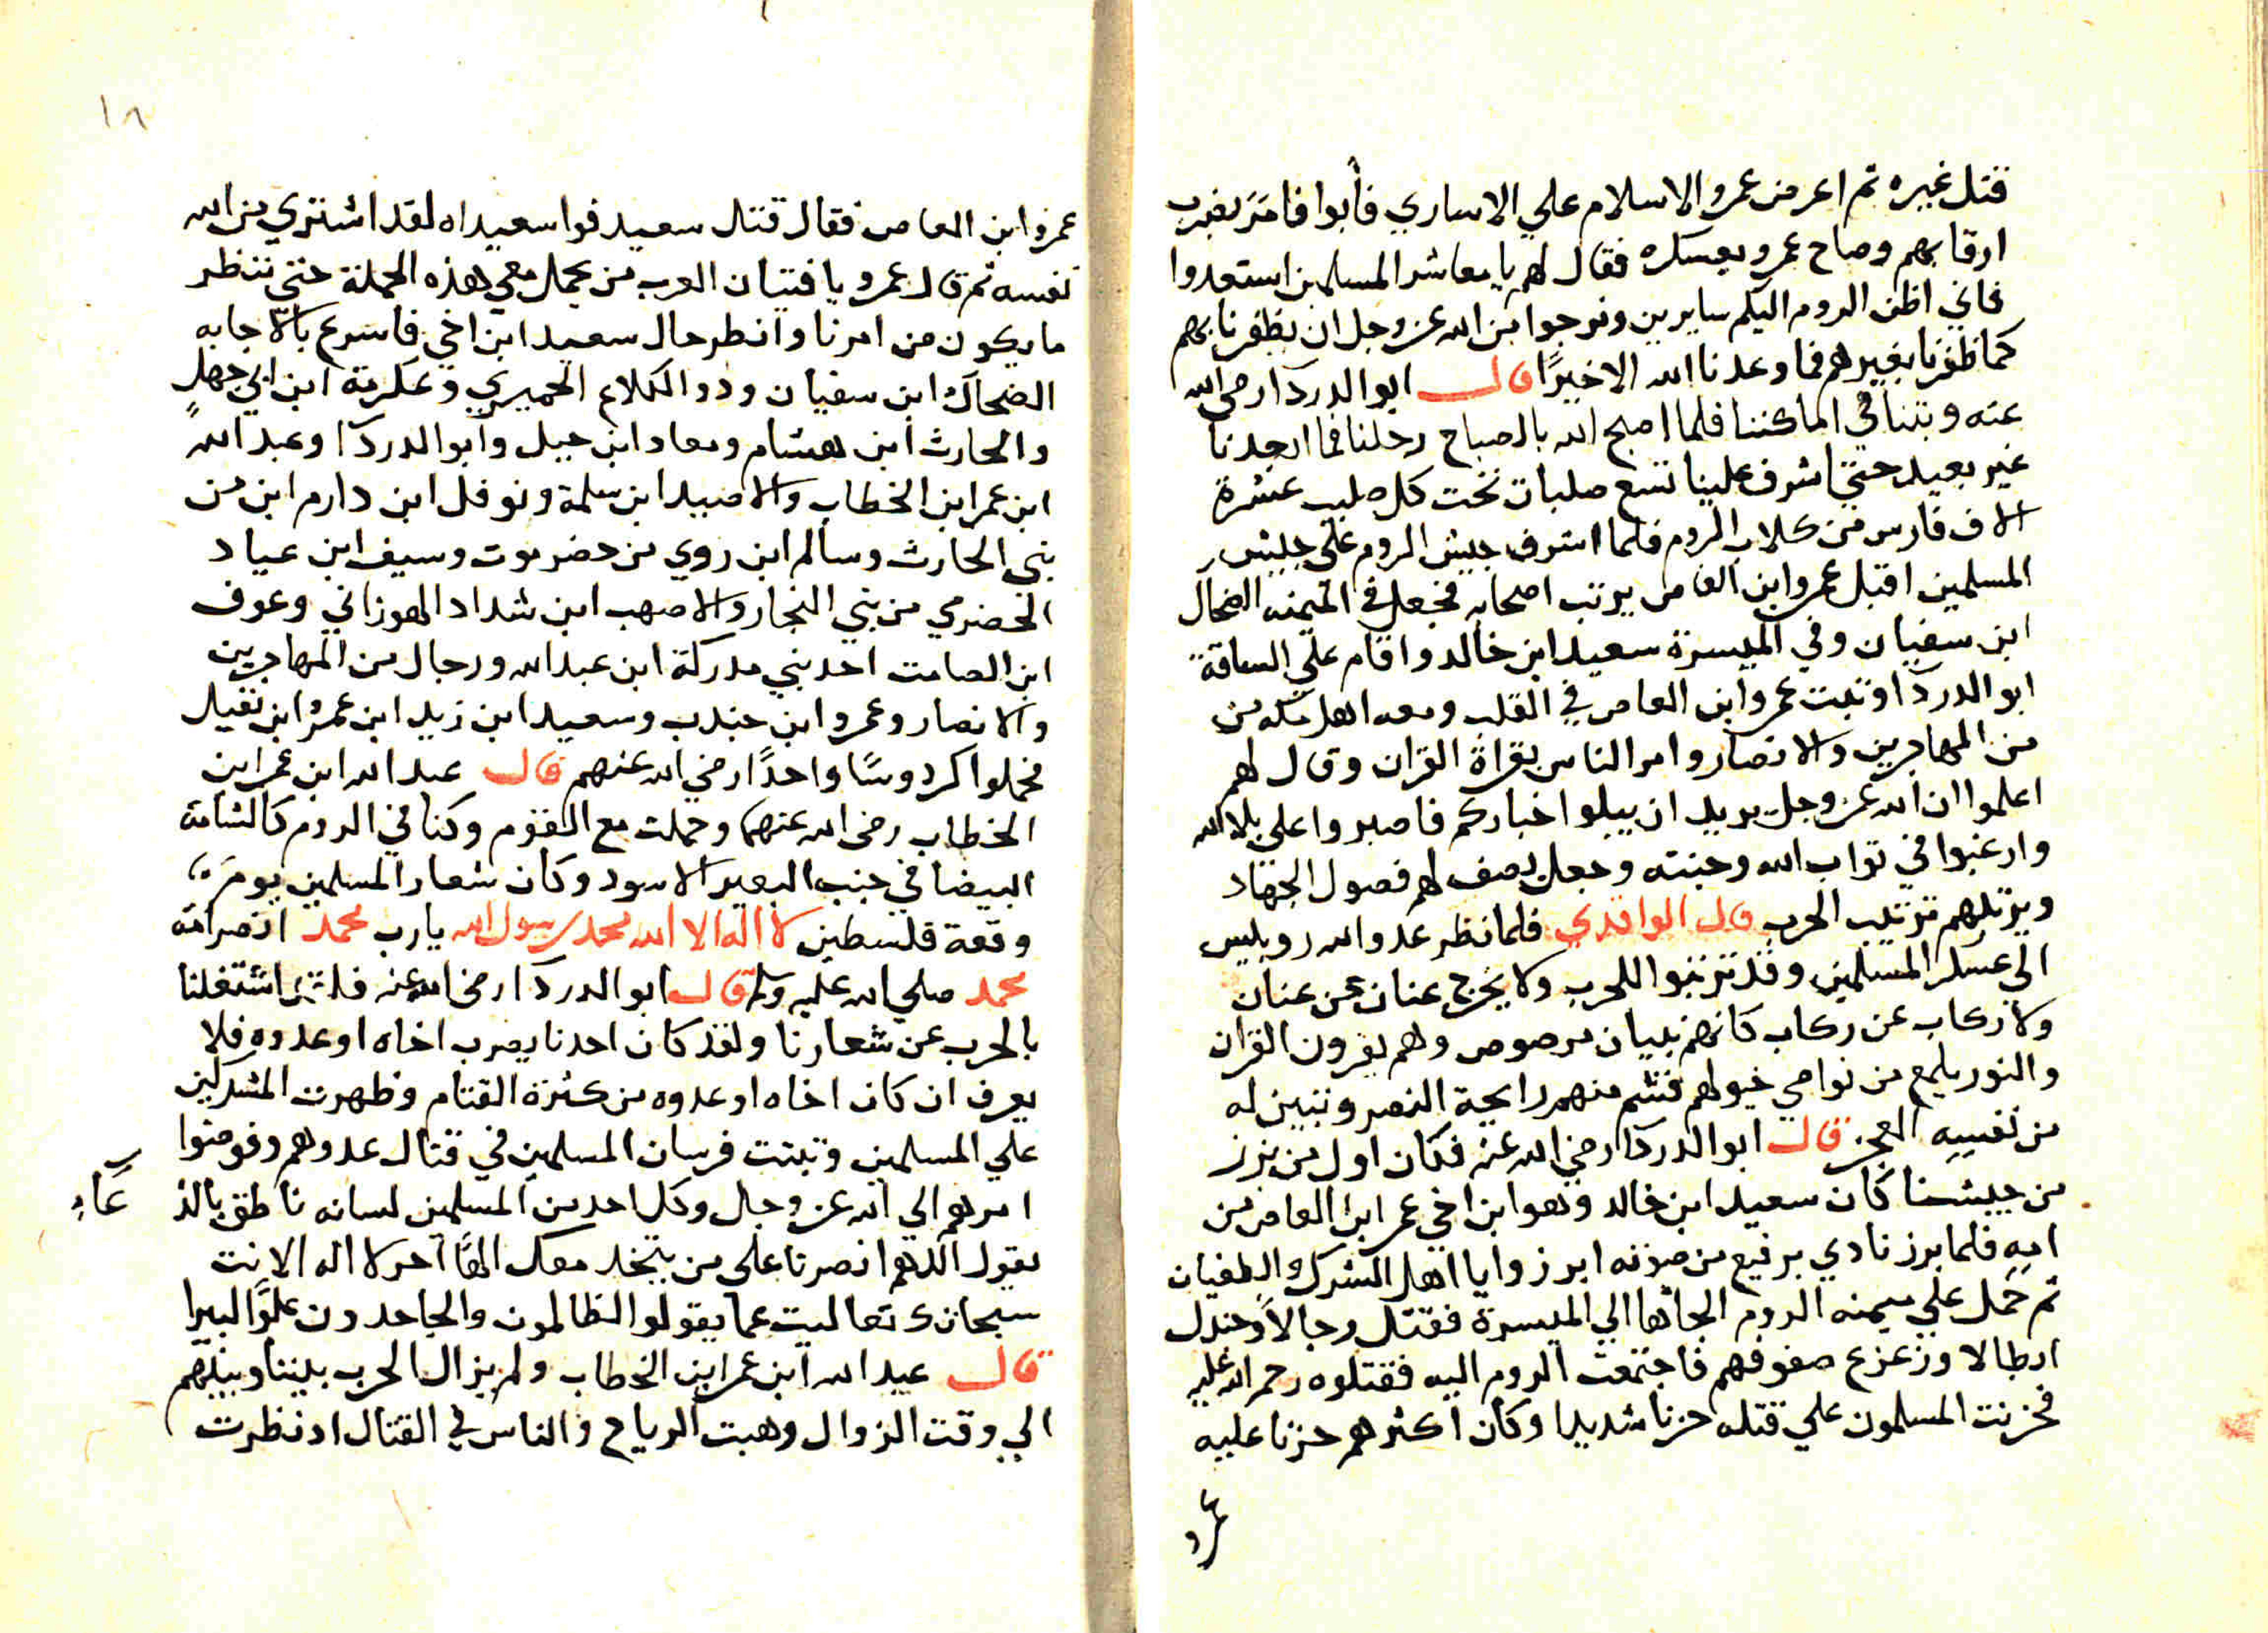 قتل غيره ثم اعرض عمرو الاسلام علي الاساري فأبوا فامر بضرب
ارقابهم وصاح عمرو بعسكره فقال لهم يا معاشر المسلمين استعدوا
فاني اظن الروم اليكم سايرين ونرجوا من الله عز وجل ان يظفرنا بهم
كما ظفرنا بغيرهم فما وعدنا الله الا خيرًا قال ابو الدردا رضي الله
عنه وبتنا في اماكننا فلما اصبح الله بالصباح رحلنا فما ابعدنا
غير بعيد حتي اشرف علينا تسع صلبات تحت كل صليب عشرة
الاف فارس من كلاب الروم فلما اشرف جيش الروم علي جيش
المسلمين اقبل عمرو ابن العاص يرتب اصحابه فجعل في الميمنه الضحاك
ابن سفيان وفي الميسرة سعيد ابن خالد واقام علي الساقة
ابو الدردا وثبت عمرو ابن العاص في القلب ومعه اهل مكه من
من المهاجرين والانصار وامر الناس بقراة القران وقال لهم
اعلموا ان الله عز وجل يريد ان يبلوا اخباركم فاصبروا علي بلا الله
وارغبوا في ثواب الله وجنته وجعل يصف لهم فصول الجهاد
ويرتبهم ترتيب الحرب قال الواقدي فلما نظر عدو الله روبيس
الي عسكر المسلمين وقد ترتبوا للحرب ولا يخرج عنان عن عنان
ولا ركاب عن ركاب كانهم بنيان مرصوص وهم يقرون القران
والنور يلمع من نواصي خيولهم فشم منهم رايحة النصر وتبين له
من نفسه العجز قال ابو الدردا رضي الله عنه فكان اول من برز
من جيشنا كان سعيد ابن خالد وهو ابن اخي عمر ابن العاص من
امه فلما برز نادي برفيع من صوته ابرزوا يا اهل الشرك والطغيان
ثم حمل علي ميمنه الروم الجاها الي الميسرة فقتل رجالاً وجندل
ابطالا وزعزع صفوفهم فاجتمعت الروم اليه فقتلوه رحمة الله عليه
فحزنت المسلمون علي قتله حزنا شديدا وكان اكثرهم حزنا عليه
١٨
عمرو ابن العاص فقال قتل سعيد فوا سعيداه لقد اشتري من الله
نفسه ثم قال عمرو يا فتيان العرب من يحمل معي هذه الحملة حتي ننظر
ما يكون من امرنا وانظر حال سعيد ابن اخي فاسرع بالاجابه
الضحاك ابن سفيان وذو الكلاع الحميري وعكرمة ابن ابي جهل
والحارث ابن هشام ومعاد ابن جبل وابو الدردا وعبد الله
ابن عمر ابن الخطاب والاصيد ابن سلمة ونوفل ابن دارم ابن من
بني الحارث وسالم ابن روي من حضرموت وسيف ابن عياد
الحضرمي من بني النجار والاصهب ابن شداد الهوزاني وعوف
ابن الصامت احد بني مدركة ابن عبد الله ورجال من المهاجرين
والانصار وعمرو ابن جندب وسعيد ابن زيد ابن عمرو ابن نفيل
فحملوا كردوسًا واحدًا رضي الله عنهم قال عبد الله ابن عمر ابن
الخطاب رضي الله عنهما وحملت مع القوم وكنا في الروم كالشامة
البيضا في جنب البعير الاسود وكان شعار المسلمين يوم
وقعة فلسطين لا اله الا الله محمد رسول الله يارب محمد انصر امة
محمد صلي الله عليه وسلم قال ابو الدردا رضي الله عنه اشتغلنا
بالحرب عن شعارنا ولقد كان احدنا يضرب اخاه او عدوه فلا
يعرف ان كان اخاه او عدوه من كثرة القتام وظهرت المشركين
علي المسلمين وثبتت فرسان المسلمين في قتال عدوهم وفوضوا
امرهم الي الله عز وجل وكل احد من المسلمين لسانه ناطق بالدعاء
يقول اللهم انصرنا علي من يتخد معك الهًا آخر لا اله الا انت
سبحانك تعاليت عما يقولو الظالمون والجاحدون علوًا كبيرا
قال عبد الله ابن عمر ابن الخطاب ولم يزال الحرب بيننا وبينهم
الي وقت الزوال وهبت الرياح والناس في القتال اد نظرت